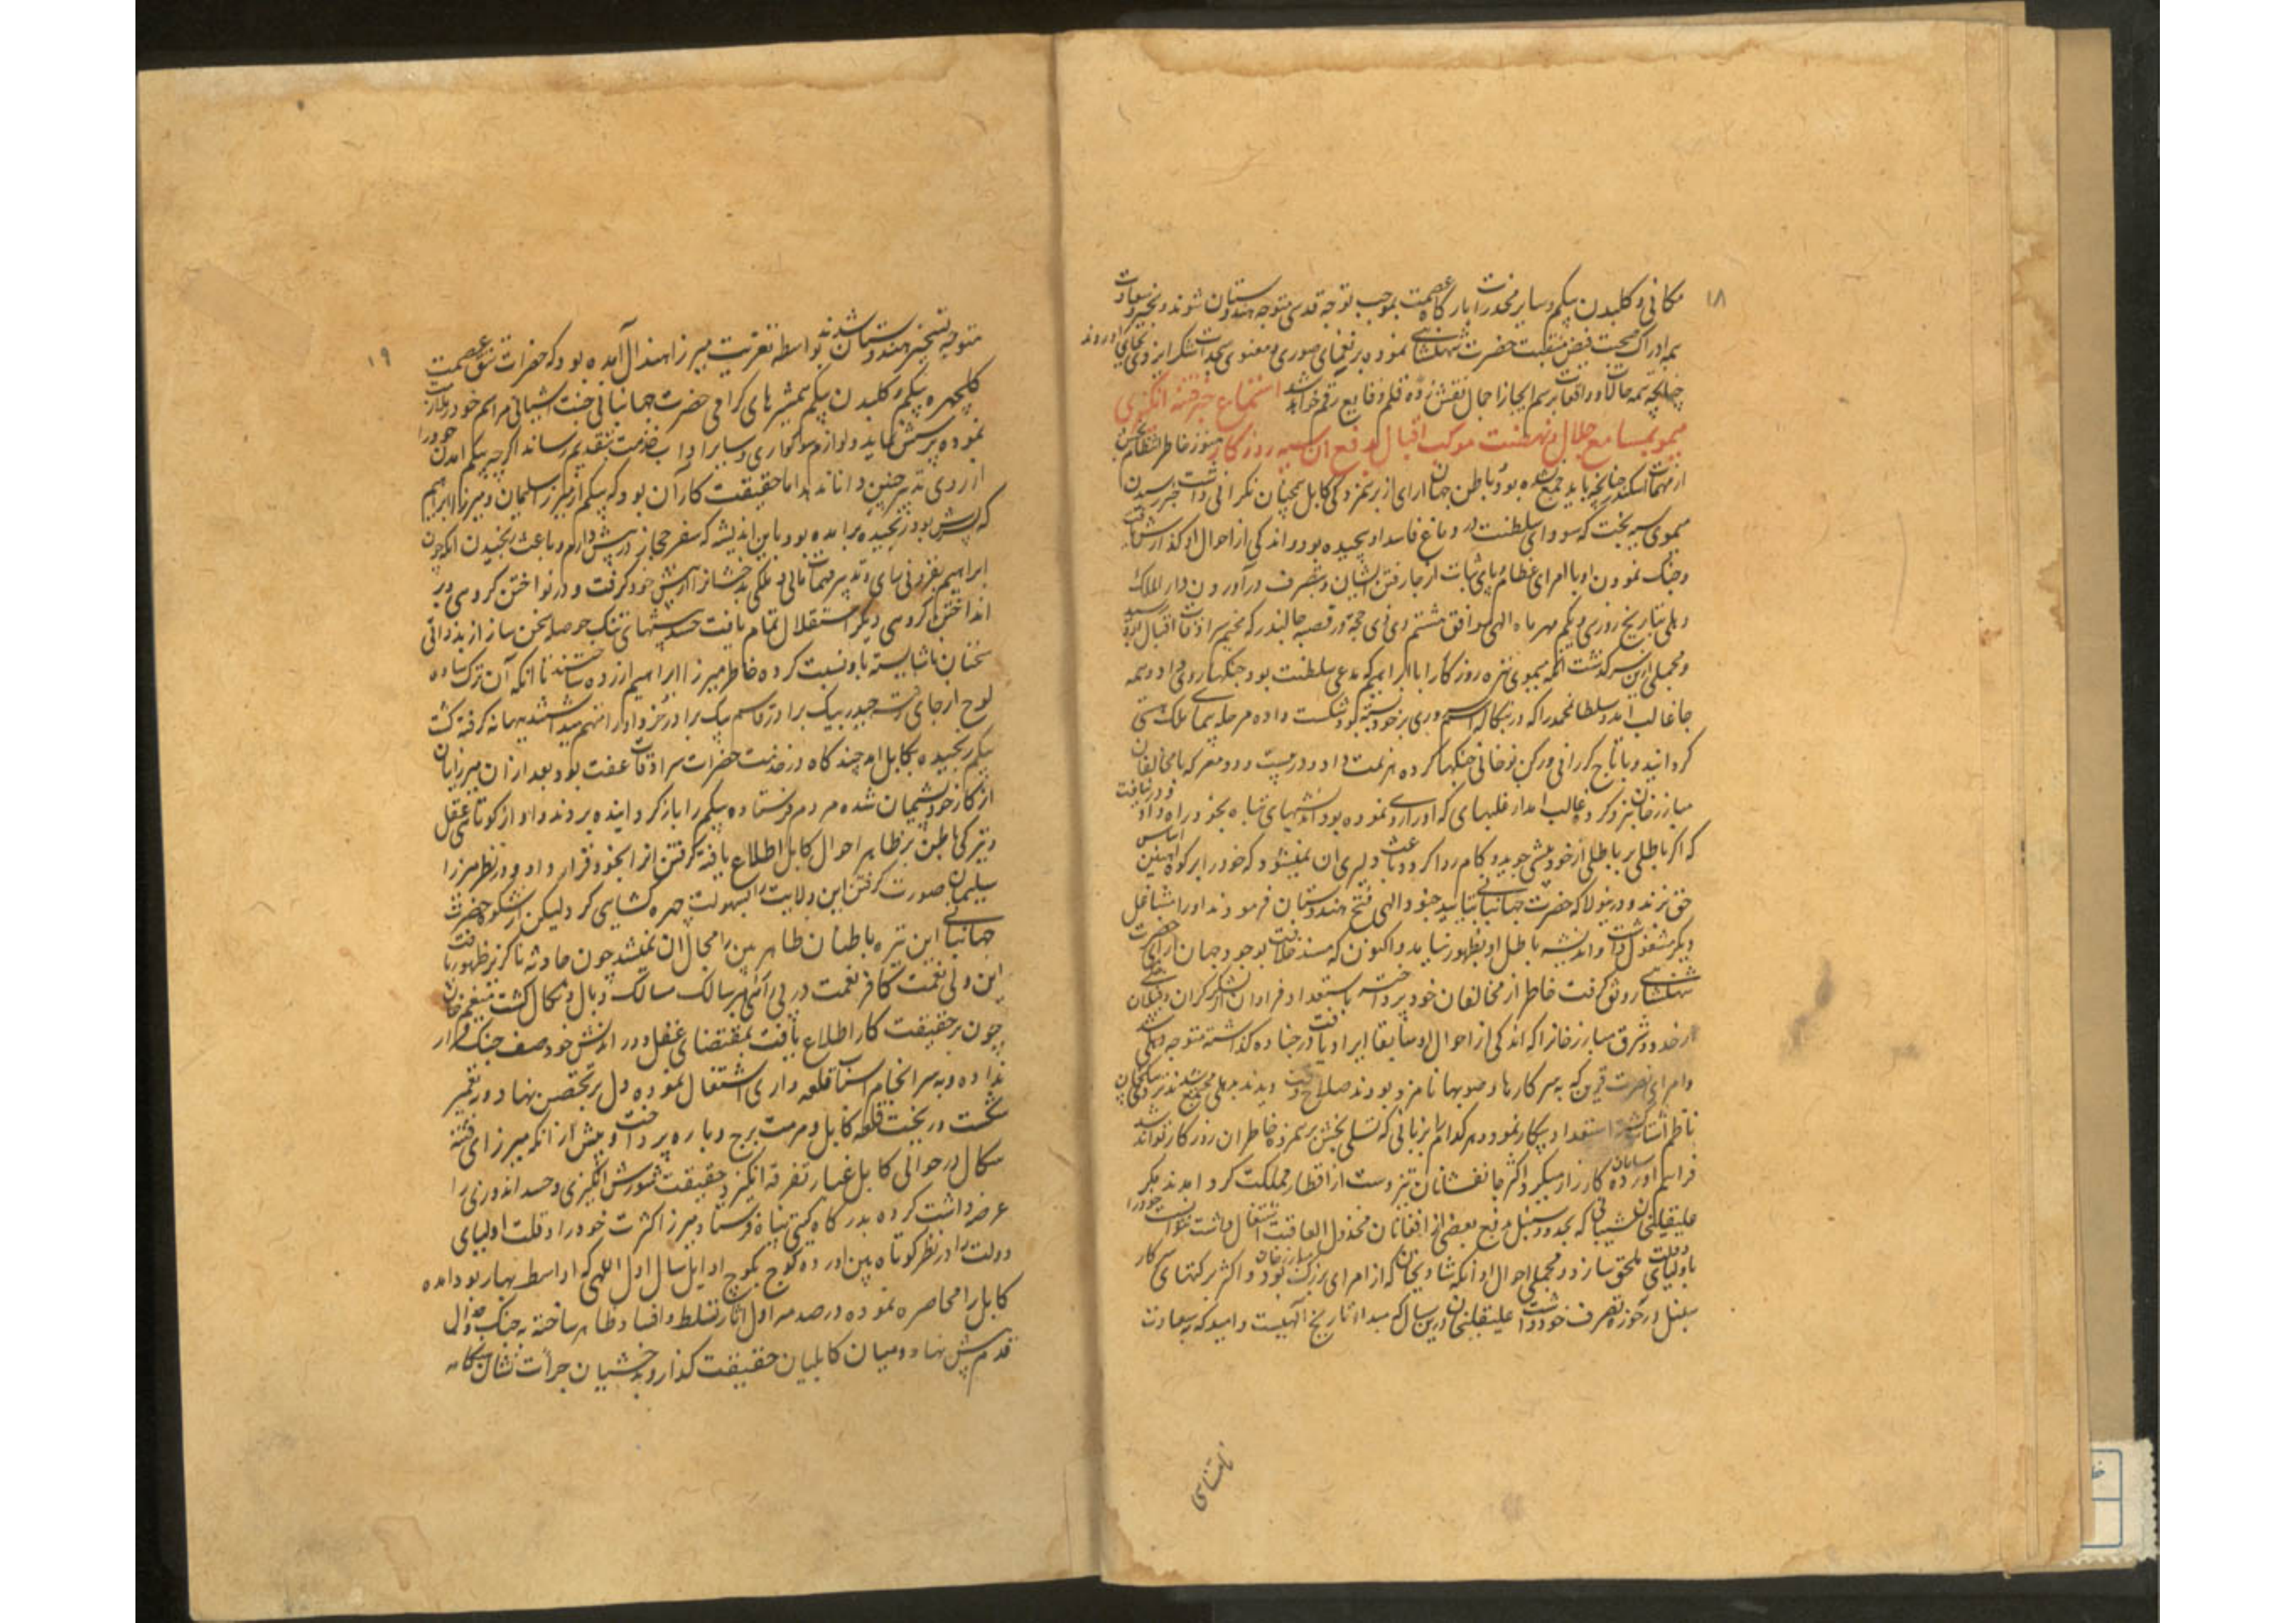 ۱۸
مکانی و کلبدن بیکم و سایر مخدرات بارگاه عصمت بموجب توجه قدسی متوجه هندوستان شوند و بخیر و سعادت
بمه ادراک صحبت فیض منقبت حضرت شهنشاهی نموده بر نعمهای صوری و معنوی سجدات شکر ایزدی بجای اوردند
چنانچه بمه حالات و واقعات برسم ایجاز اجمال نقش زده قلم وقایع رقم خواهد شد استماع خبر فتنه انگیزی
هیمو بمسامع جلال و نهضت موکب اقبال بدفع ان سیه روزکار هنوز خاطر انتظام بخش
از مهمات اسکندر چنانچه باید جمع نشده بود و باطن جهان ارای از برهمزدکی کابل همچنان نکرانی داشت خبر رسیدن
هیموی سیه بخت که سودای سلطنت در دماغ فاسد او پیچیده بود و اندکی از احوال او کذارش یافت
و جنک نمودن او با امرای عظام و پای ثبات از جا رفتن ایشان و بتصرف درآوردن دار الملک
دهلی بتاریخ روز سی و یکم مهر ماه الهی موافق هشتم ذی حجه در قصبه جالندر که مخیم سرادقات اقبال بود رسید
و مجملی ازین سرکذشت انکه هیموی تیره روزکار را با ابراهیم که مدعی سلطنت بود جنکها روی داد و همه
جا غالب امد و سلطان محمد را که در بنکاله اسم سروری بر خود بسته بود شکست داده مرحله پیمای ملک نیستی
کردانید و با تاج کرانی و رکن نوخانی جنکها کرده هزیمت داد و در بیست و دو معرکه با مخالفان
مبارزخان نبرد کرد و غالب امد از غلبهای که او را روی نموده بود اندیشهای تباه بخود راه داد و در نیافت
که اکر باطلی بر باطلی از خود بیشی جوید و کام روا کردد باعث دلیری ان نمیشود که خود را بر کوه اهنین اساس
حق زند و درینولا که حضرت جهانبانی بتایید جنود الهی فتح هندوستان فرمودند او را مشاغل
دیکر مشغول داشت و اندیشه باطل او بظهور نیامد و اکنون که مسند خلافت بوجود جهان ارای حضرت
شهنشاهی رونق کرفت خاطر از مخالفان خود پرداخته باستعداد فراوان از لشکر کران و فیلان
از حدود شرق مبارزخان را که اندکی از احوال او سابقا ایراد یافت در چناده کذاشته متوجه دهلی شد
و امرای نصرت قرین که بر سرکارها و صوبها نامزد بودند صلاح وقت دیدند بدهلی مجتمع شدند
فراهم اورده سامان کارزار میکرد و اکثر جانفشانان تیزدست از اقطار مملکت کرد امدند مکر
علیقلیخان شیبانی که بحدود سنبل بدفع بعضی از افغانان مخذول العاقبت اشتغال داشت نتوانست خود را
باولیای دولت ملحق سازد و مجملی احوال او انکه شادیخان که از امرای بزرک مبارزخان بود و اکثر برکنهای سرکار
سنبل در حوزه تصرف خود داشت علیقلیخان درین سال که مبدا تاریخ الهیست و امید که بسعادت
نامتناهی
۱۹
متوجه تسخیر هندوستان شدند بواسطه تعزیت میرزا هندال آمده بود که حضرات تتق عصمت
کلچهره بیکم و کلبدن بیکم همشیرهای کرامی حضرت جهانبانی جنت اشیانی مراسم خود را ملازمت
نموده پرسش نماید و لوازم سوکواری و سایر اداب خدمت بتقدیم رساند اکرچه بیکم امدن خود را
از روی تدبیر چنین دانانید اما حقیقت کار آن بود که بیکم از میرزا سلیمان و میرزا ابراهیم
که پسرش بود رنجیده برامده بود باین اندیشه که سفر حجاز در پیش دارم و باعث رنجیدن انکه چون
ابراهیم بفزونی رای و تدبیر مهمات مالی و ملکی بدخشانرا از پیش خود کرفت و در نواختن کروهی و بر
انداختن کروهی دیکر استقلال تمام یافت حسد پیشهای تنک حوصله سخن ساز از بدذاتی
سخنان ناشایسته باو نسبت کرده خاطر میرزا ابراهیم ازرده ساختند تا انکه آن ترک ساده
لوح از جای رفت حیدر بیک برادر قاسم بیک برادر خرد او را متهم میداشتند بهانه کرفته کشت
بیکم رنجیده بکابل امد چند کاه در خدمت حضرات سرادقات عفت بود بعد از آن میرزایان
از کار خود پشیمان شده مردم فرستاده بیکم را باز کردانیده بردند و او از کوتاهی عقل
و تیرکی باطن بر ظاهر احوال کابل اطلاع یافته کرفتن انرا بخود قرار داد و در نظر میرزا
سلیمان صورت کرفتن این ولایت را بسهولت چهره کشایی کرد لیکن از شکوه حضرت
جهانبانی این تیره باطنان ظاهر بین را مجال ان نمیشد چون حادثه ناکزیر ظهور یافت
این ولی نعمت کافر نعمت در پی آن شد سالک مسالک وبال و نکال کشت منعم خان
چون بر حقیقت کار اطلاع یافت بمقتضای عقل دور اندیش خود صف جنک قرار
نداده و بسرانجام اسباب قلعه داری اشتغال نموده دل بر تحصن نهاد و در تعمیر
شکست و ریخت قلعه کابل و مرمت برج و باره پرداخت و پیش از انکه میرزای فتنه
سکال در حوالی کابل غبار تفرقه انکیزد حقیقت شورش انکیزی و حسد اندوزی را
عرضداشت کرده بدرکاه کیتی پناه فرستاد و میرزا کثرت خود را و قلت اولیای
دولت را در نظر کوتاه بین اورده کوچ بکوچ اوایل سال اول الهی که اواسط بهار بود امده
کابل را محاصره نموده در صدمه اول اثار تسلط و افساد ظاهر ساخته بجنک و جدال
قدم پیش نهاد و میان کابلیان حقیقت کذار و بدخشیان جرأت نشان هنکامه